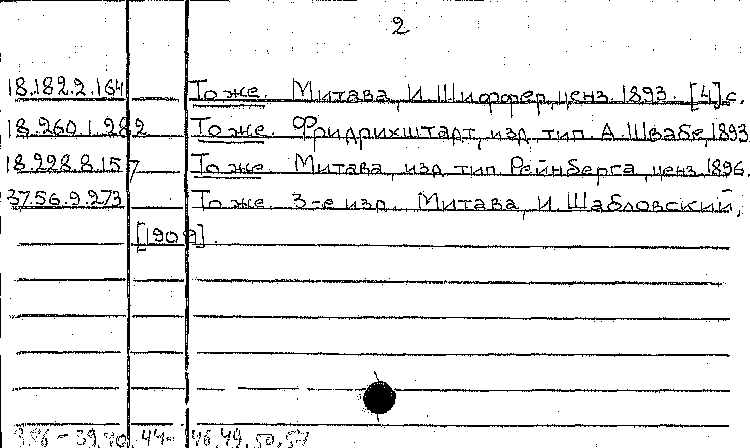 2
18.182.2.164 То же. Митава, И. Шиффер, ценз. 1893. [4] с.
18.260.1.282 То же. Фридрихштадт, изд. тип. А. Швабе, 1893
18.228.8.157 То же. Митава, изд. тип. Рейнберга, ценз. 1896.
37.56.9.273 То же. 3-е изд. Митава, И. Шабловский,
[1909].
44- 46,49,50,57